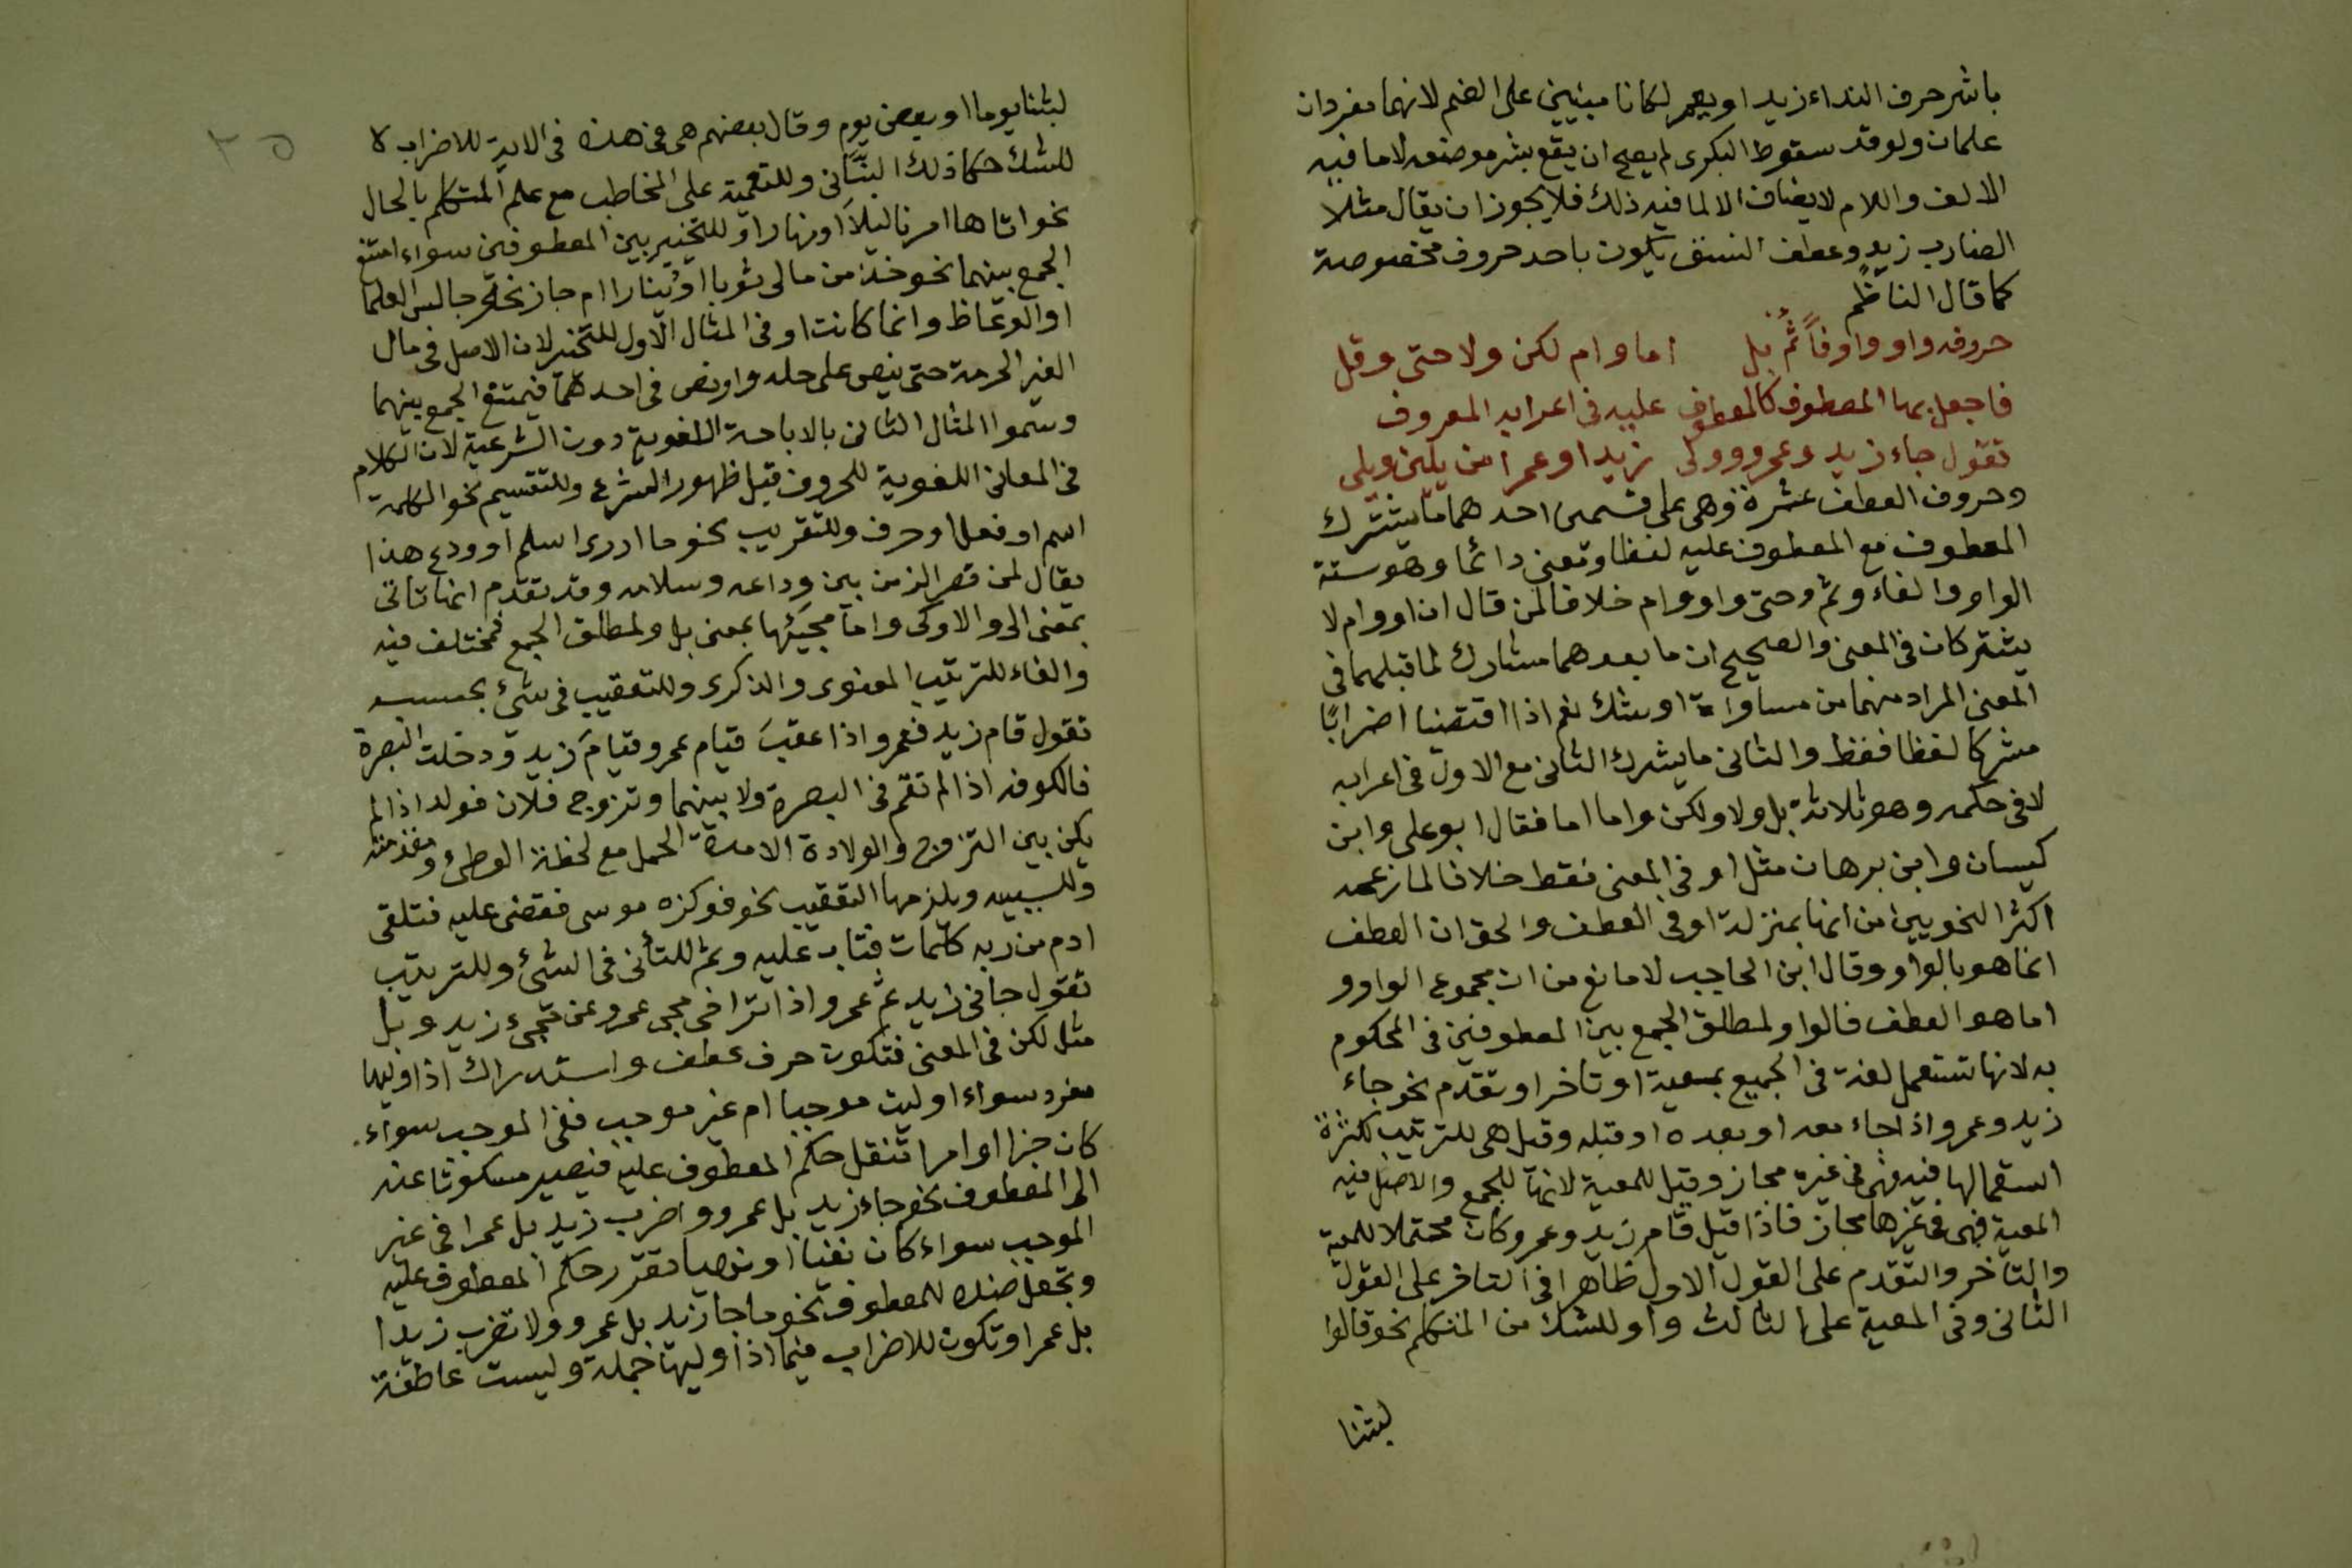 باشر حرف النداء زيد او يعمر لكانا مبنيين على الضم لانهما مفردان
علمان ولو قد سقوط البكرى لم يصح ان يقع بشر موضعه لاما فيه
الالف واللام لا يضاف الا لما فيه ذلك فلا يجوز ان يقال مثلا
الضارب زيد وعطف النسق يكون باحد حروف مخصوصة
كما قال الناظم
حروفه واو واو فا ثم بل اما وام لكن ولا حتى وقل
فاجعل بها المعطوف كالمعطوف عليه فى اعرابه المعروف
تقول جاء زيد وعمرو وولى زيدا او عمرا من يلين ويلى
وحروف العطف عشرة وهى على قسمين احدهما ما يشترك
المعطوف مع المعطوف عليه لفظا ومعنى دائما وهو ستة
الواو والفاء وثم وحتى واو وام خلافا لمن قال ان او وام لا
يشتركان فى المعنى والصحيح ان ما بعدهما مشارك لما قبلهما فى
المعنى المراد منهما من مساواة او شك نعم اذا اقتضيا اضرابا
مشركا لفظا فقط والثانى ما يشرك الثانى مع الاول فى اعرابه
لا فى حكمه وهو ثلاثة بل ولا ولكن واما اما فقال ابو على وابن
كيسان وابن برهان مثل او فى المعنى فقط خلافا لما زعمه
اكثر النحويين من انها بمنزلة او فى العطف والحق ان العطف
انما هو بالواو وقال ابن الحاجب لا مانع من ان مجموع الواو و
اما هو العطف فالواو لمطلق الجمع بين المعطوفين فى المحكوم
به لانها تستعمل لغة فى الجميع بمعية او تاخر او تقدم نحو جاء
زيد وعمرو اذا جاء معه او بعده او قبله وقيل هى للترتيب لكثرة
استعمالها فيه فهى فى غيره مجاز وقيل للمعية لانها للجمع والاصل فيه
المعية فهى فى غيرها مجاز فاذا قيل قام زيد وعمرو كان محتملا للمعية
والتاخر والتقدم على القول الاول ظاهرا فى التاخر على القول
الثانى وفى المعية على الثالث واو للشك من المتكلم نحو قالوا
لبثنا
٣٥
لبثنا يوما او بعض يوم وقال بعضهم هى فى هذه فى الاية للاضراب لا
للشك حكا ذلك البنانى وللتعمية على المخاطب مع علم المتكلم بالحال
نحو اتاها امرنا ليلا او نهارا وللتخيير بين المعطوفين سواء امتنع
الجمع بينهما نحو خذ من مالى ثوبا او دينارا ام جاز نحو جالس العلما
او الوعاظ وانما كانت او فى المثال الاول للتخير لان الاصل فى مال
الغير الحرمة حتى ينص على حله واو نص فى احدهما فيمتنع الجمع بينهما
وسموا المثال الثانى بالاباحة اللغوية دون الشرعية لان الكلام
فى المعانى اللغوية للحروف قبل ظهور الشرع وللتقسيم نحو الكلمة
اسم او فعل او حرف وللتقريب نحو ما ادرى اسلم او ودع هذا
يقال لمن قصر الزمن بين وداعه وسلامه وقد تقدم انها تاتى
بمعنى الى والا وكى واما مجيئها بمعنى بل ولمطلق الجمع فمختلف فيه
والفاء للترتيب المعنوى والذكرى وللتعقيب فى شئ بحسبه
تقول قام زيد فعمرو اذا عقب قيام عمرو قيام زيد ودخلت البصرة
فالكوفه اذا لم تقم فى البصرة ولا بينهما وتزوج فلان فولد اذا لم
يكن بين التزوج والولادة الا مدة الحمل مع لحظة الوطئ ومقدمته
وللسببيه ويلزمها التعقيب نحو فوكزه موسى فقضى عليه فتلقى
ادم من ربه كلمات فتاب عليه وثم للتأنى فى الشئ وللترتيب
تقول جانى زيد ثم عمرو اذا تراخى مجى عمرو عن مجئ زيد وبل
مثل لكن فى المعنى فتكون حرف عطف واستدراك اذا وليها
مفرد سواء اوليت موجبا ام غير موجب ففى الموجب سواء
كان خبرا او امرا تنقل حكم المعطوف عليه فيصير مسكوتا عنه
الى المعطوف نحو جاء زيد بل عمرو واضرب زيد بل عمرا فى غير
الموجب سواء كان نفيا او نهيا تقرر حكم المعطوف عليه
وتجعل ضده للمعطوف نحو ما جا زيد بل عمرو ولا تضرب زيدا
بل عمرا وتكون للاضراب فيما اذا وليها جملة وليست عاطفة